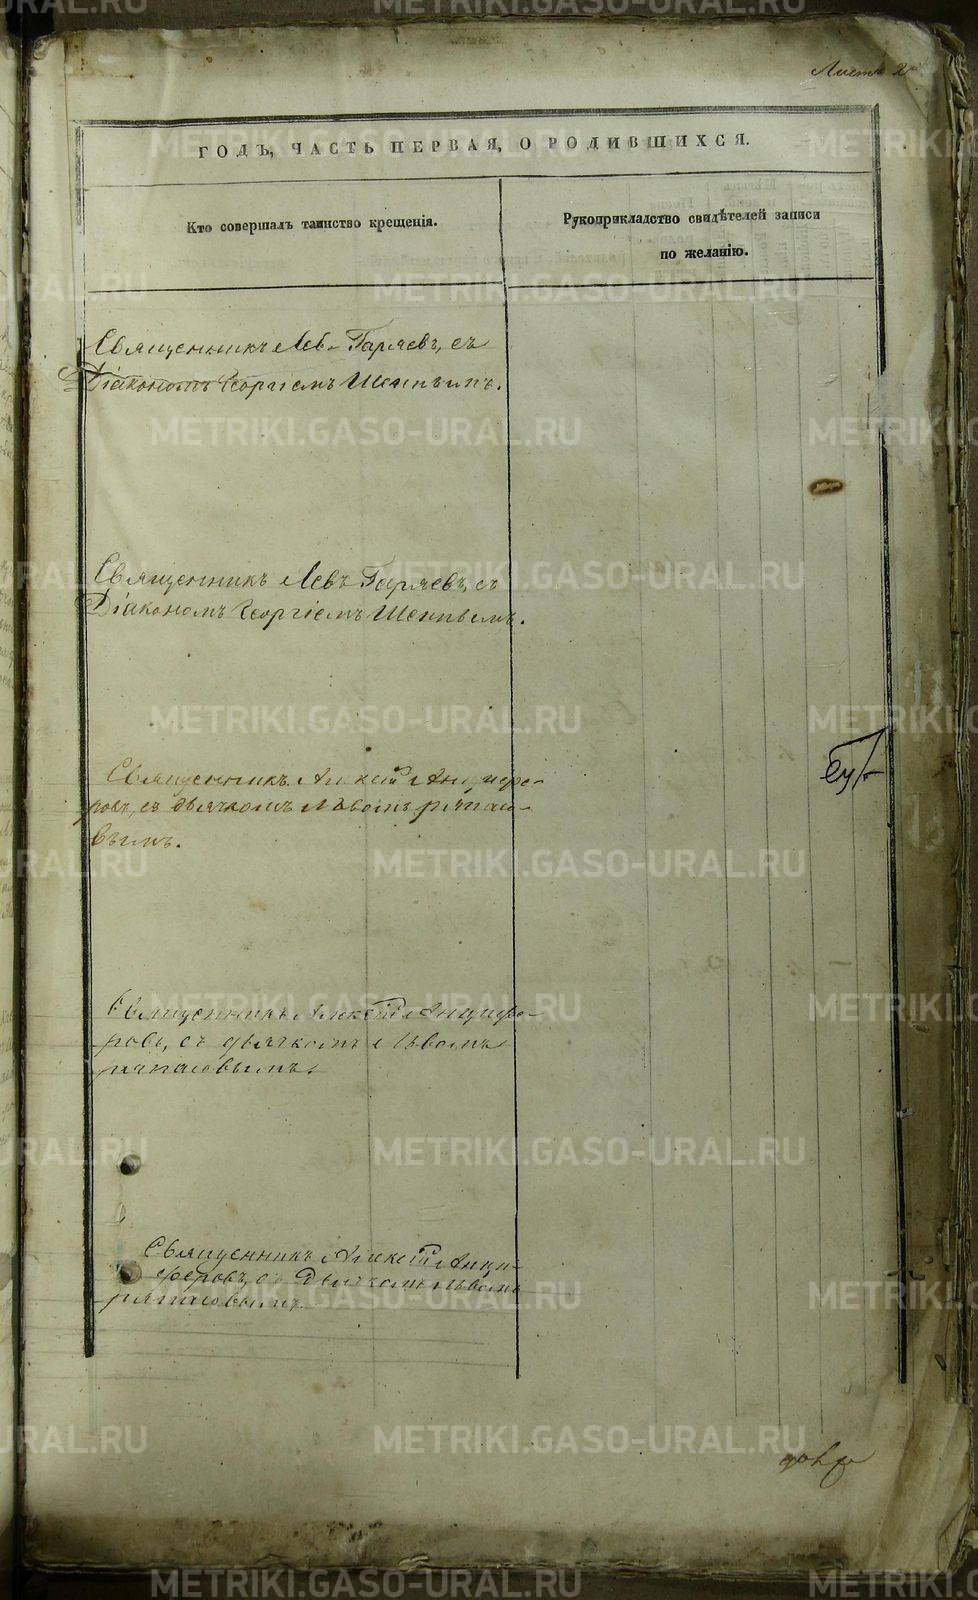 Листъ 2
ГОДЪ, ЧАСТЬ ПЕРВАЯ, О РОДИВШИХСЯ.
Кто совершалъ таинство крещенія.
Рукоприкладство свидѣтелей записи
по желанію.
Священникъ Левъ Гаряевъ, съ
Діакономъ Георгіемъ
Священникъ Левъ Гаряевъ, съ
Діакономъ Георгіемъ
Священникъ Алексѣй Анциfе-
ровъ, съ дьячкомъ Львомъ
вымъ.
Священникъ Алексѣй Анцифе-
ровъ, съ дьячкомъ Львомъ
Священникъ Алексѣй Анци-
феровъ, съ Дьячкомъ Львомъ
METRIKI.GASO-URAL.RU